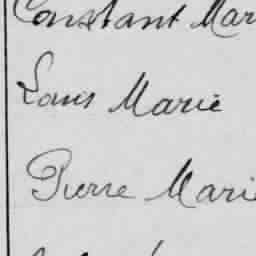 Constant Mar
Louis Marie
Pierre Marie